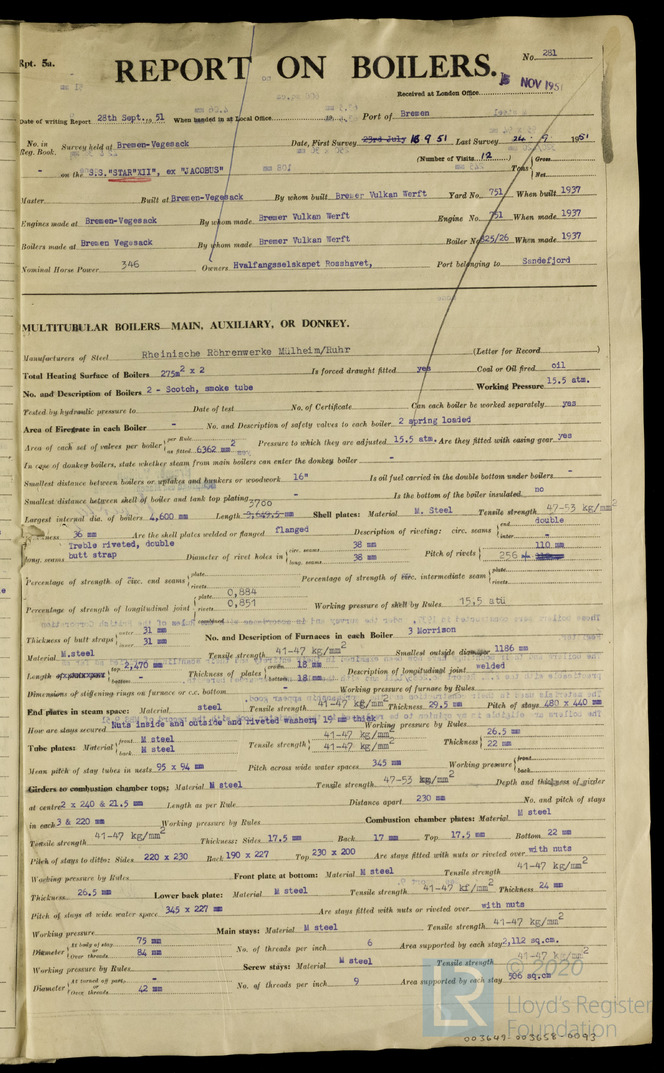 Rpt. 5a.
No. 281
REPORT ON BOILERS.
NOV 1951
Received at London Office
Date of writing Report 28th Sept., 19 51 When handed in at Local Office 19 Port of Bremen
No. in Reg. Book. Survey held at Bremen-Vegesack Date, First Survey 23rd July 16 9 51 Last Survey 24 - 9 - 1951
(Number of Visits 12 )
- on the S.S."STAR"XII", ex "JACOBUS" Tons { Gross Net
Master Built at Bremen-Vegesack By whom built Bremer Vulkan Werft Yard No. 751 When built 1937
Engines made at Bremen-Vegesack By whom made Bremer Vulkan Werft Engine No. 751 When made 1937
Boilers made at Bremen Vegesack By whom made Bremer Vulkan Werft Boiler No 825/26 When made 1937
Nominal Horse Power 346 Owners Hvalfangsselskapet Rosshavet, Port belonging to Sandefjord
MULTITUBULAR BOILERS—MAIN, AUXILIARY, OR DONKEY.
Manufacturers of Steel Rheinische Röhrenwerke Mülheim/Ruhr (Letter for Record )
Total Heating Surface of Boilers 275m² x 2 Is forced draught fitted yes Coal or Oil fired oil
No. and Description of Boilers 2 - Scotch, smoke tube Working Pressure 15.5 atm.
Tested by hydraulic pressure to Date of test No. of Certificate Can each boiler be worked separately yes
Area of Firegrate in each Boiler - No. and Description of safety valves to each boiler 2 spring loaded
Area of each set of valves per boiler { per Rule as fitted 6362 mm² Pressure to which they are adjusted 15.5 atm. Are they fitted with easing gear yes
In case of donkey boilers, state whether steam from main boilers can enter the donkey boiler -
Smallest distance between boilers or uptakes and bunkers or woodwork 16" Is oil fuel carried in the double bottom under boilers -
Smallest distance between shell of boiler and tank top plating Is the bottom of the boiler insulated no
Largest internal dia. of boilers 4,600 mm Length 3700 3,649.5 mm Shell plates: Material M. Steel Tensile strength 47-53 kg/mm²
Thickness 36 mm Are the shell plates welded or flanged flanged Description of riveting: circ. seams { end double inter -
long. seams Treble riveted, double butt strap Diameter of rivet holes in { circ. seams 38 mm long. seams 38 mm Pitch of rivets { 110 mm 256
Percentage of strength of circ. end seams { plate rivets Percentage of strength of circ. intermediate seam { plate rivets
Percentage of strength of longitudinal joint { plate 0,884 rivets 0,851 combined Working pressure of shell by Rules 15,5 atü
Thickness of butt straps { outer 31 mm inner 31 mm No. and Description of Furnaces in each Boiler 3 Morrison
Material M.steel Tensile strength 41-47 kg/mm² Smallest outside diameter 1186 mm
Length top 2,470 mm Thickness of plates { crown 18 mm bottom 18 mm Description of longitudinal joint welded
Dimensions of stiffening rings on furnace or c.c. bottom - Working pressure of furnace by Rules
End plates in steam space: Material steel Tensile strength 41-47 kg/mm² Thickness 29,5 mm Pitch of stays 480 x 440 mm
How are stays secured Nuts inside and outside and riveted washers, 19 mm thick Working pressure by Rules
Tube plates: Material { front M steel back M steel Tensile strength { 41-47 kg/mm² 41-47 kg/mm² Thickness { 26.5 mm 22 mm
Mean pitch of stay tubes in nests 95 x 94 mm Pitch across wide water spaces 345 mm Working pressure { front back
Girders to combustion chamber tops: Material M steel Tensile strength 47-53 kg/mm² Depth and thickness of girder
at centre 2 x 240 & 21.5 mm Length as per Rule Distance apart 230 mm No. and pitch of stays
in each 3 & 220 mm Working pressure by Rules Combustion chamber plates: Material M steel
Tensile strength 41-47 kg/mm² Thickness: Sides 17.5 mm Back 17 mm Top 17,5 mm Bottom 22 mm
Pitch of stays to ditto: Sides 220 x 230 Back 190 x 227 Top 230 x 200 Are stays fitted with nuts or riveted over with nuts
Working pressure by Rules Front plate at bottom: Material M steel Tensile strength 41-47 kg/mm²
Thickness 26.5 mm Lower back plate: Material M steel Tensile strength 41-47 kf/mm² Thickness 24 mm
Pitch of stays at wide water space 345 x 227 mm Are stays fitted with nuts or riveted over with nuts
Working pressure Main stays: Material M steel Tensile strength 41-47 kg/mm²
Diameter { At body of stay 75 mm or Over threads 84 mm No. of threads per inch 6 Area supported by each stay 2,112 sq.cm.
Working pressure by Rules Screw stays: Material M steel Tensile strength 41-47 kg/mm²
Diameter { At turned off part - or Over threads 42 mm No. of threads per inch 9 Area supported by each stay 506 sq.cm
© 2020
Lloyd's Register
Foundation
003649-003658-0093